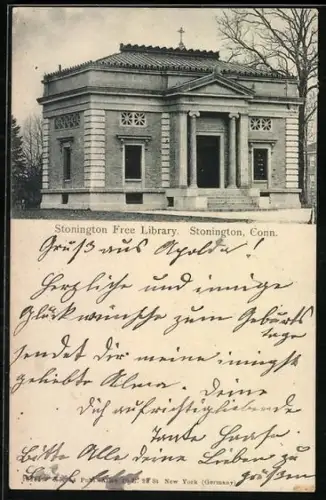 Stonington Free Library. Stonington, Conn.
Gruß aus Apolda!
Herzliche und innige
Glückwünsche zum Geburts
tage
sendet dir meine innigst
geliebte Alma. Deine
Dich aufrichtigliebende
Tante
Bitte Alle deine Lieben zu
grüßen
New York (Germany)